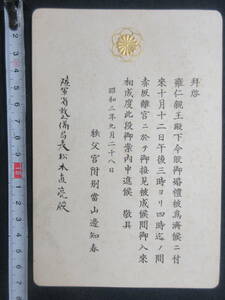 拝啓
雍仁親王殿下今般御婚禮被爲濟候ニ付
來十月十二日午後三時ヨリ四時迄ノ間
赤坂離宮ニ於テ御接見被成候間御入來
相成度此段御案内申進候　敬具
昭和三年九月二十八日
秩父宮附別當山邊知春
陸軍省整備局長松木直亮殿